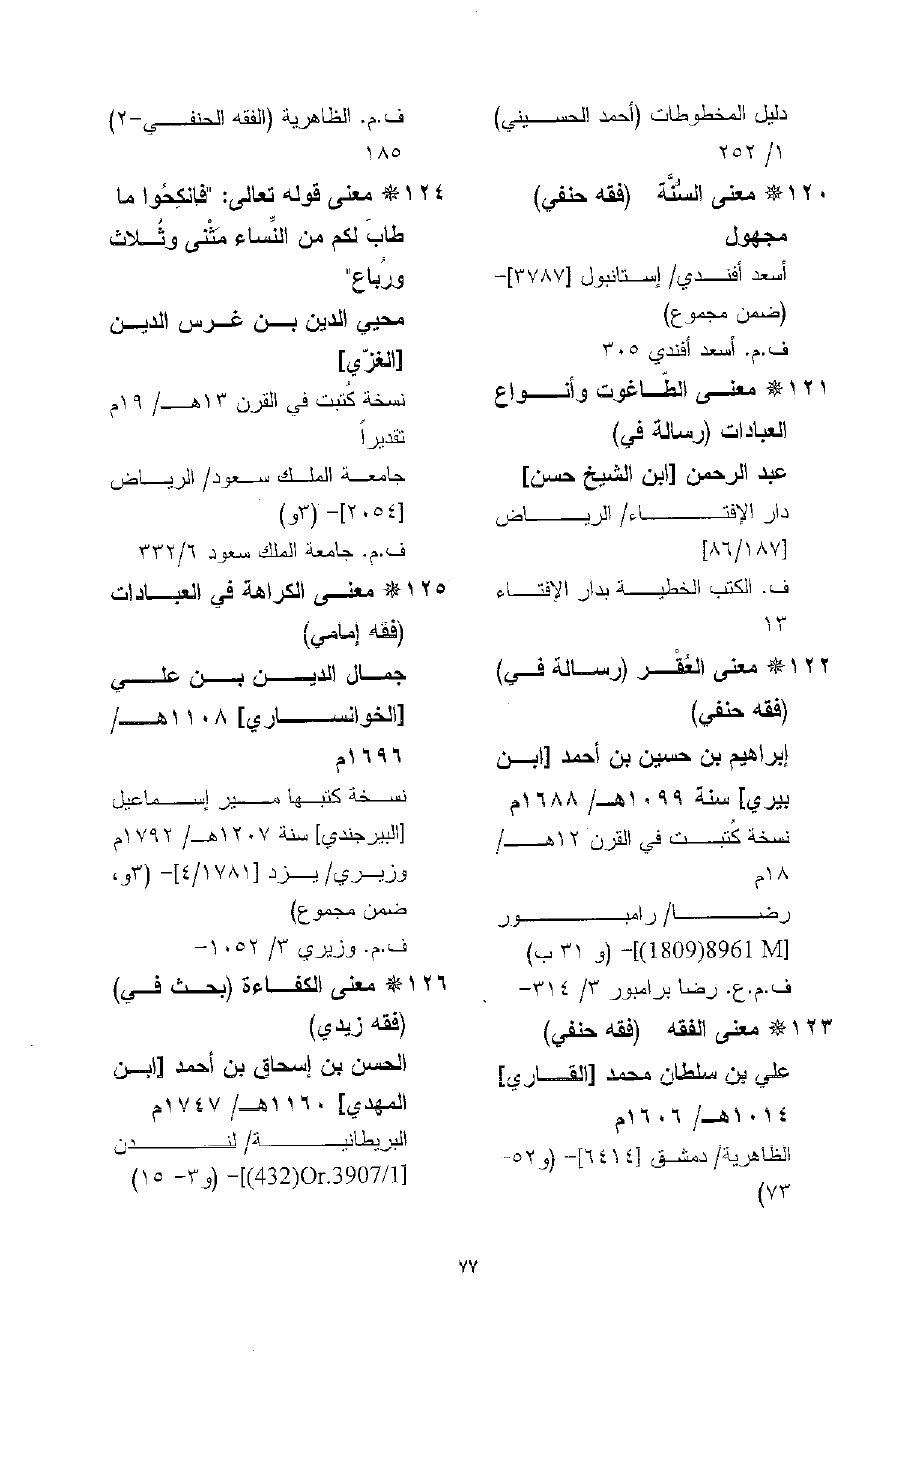 دليل المخطوطات (أحمد الحسيني)
١/ ٢٥٢
١٢٠* معنى السُّنَّة (فقه حنفي)
مجهول
أسعد أفندي/ إستانبول [٣٧٨٧]-
(ضمن مجموع)
ف.م. أسعد أفندي ٣٠٥
١٢١* معنى الطّاغوت وأنواع
العبادات (رسالة في)
عبد الرحمن [ابن الشيخ حسن]
دار الإفتاء/ الرياض
[٨٦/١٨٧]
ف. الكتب الخطية بدار الإفتاء
١٣
١٢٢* معنى العُقْر (رسالة في)
(فقه حنفي)
إبراهيم بن حسين بن أحمد [ابن
بيري] سنة ١٠٩٩هـ/ ١٦٨٨م
نسخة كُتبت في القرن ١٢هـ/
١٨م
رضا/ رامبور
[8961 M(1809)]- (و ٣١ ب)
ف.م.ع. رضا برامبور ٣/ ٣١٤-
١٢٣* معنى الفقه (فقه حنفي)
علي بن سلطان محمد [القاري]
١٠١٤هـ/ ١٦٠٦م
الظاهرية/ دمشق [٦٤١٤]- (و٥٢-
٧٣)
ف.م. الظاهرية (الفقه الحنفي-٢)
١٨٥
١٢٤* معنى قوله تعالى: "فَانكِحُوا ما
طابَ لكم من النِّساء مَثْنى وثُلاث
ورُباع"
محيي الدين بن غرس الدين
[الغزّي]
نسخة كُتبت في القرن ١٣هـ/ ١٩م
تقديراً
جامعة الملك سعود/ الرياض
[٢٠٥٤]- (٣و)
ف.م. جامعة الملك سعود ٣٣٢/٦
١٢٥* معنى الكراهة في العبادات
(فقه إمامي)
جمال الدين بن علي
[الخوانساري] ١١٠٨هـ/
١٦٩٦م
نسخة كتبها مير إسماعيل
[البيرجندي] سنة ١٢٠٧هـ/ ١٧٩٢م
وزيري/ يزد [٤/١٧٨١]- (٣و،
ضمن مجموع)
ف.م. وزيري ٣/ ١٠٥٢-
١٢٦* معنى الكفاءة (بحث في)
(فقه زيدي)
الحسن بن إسحاق بن أحمد [ابن
المهدي] ١١٦٠هـ/ ١٧٤٧م
البريطانية/ لندن
[Or.3907/1(432)]- (و٣- ١٥)
٧٧